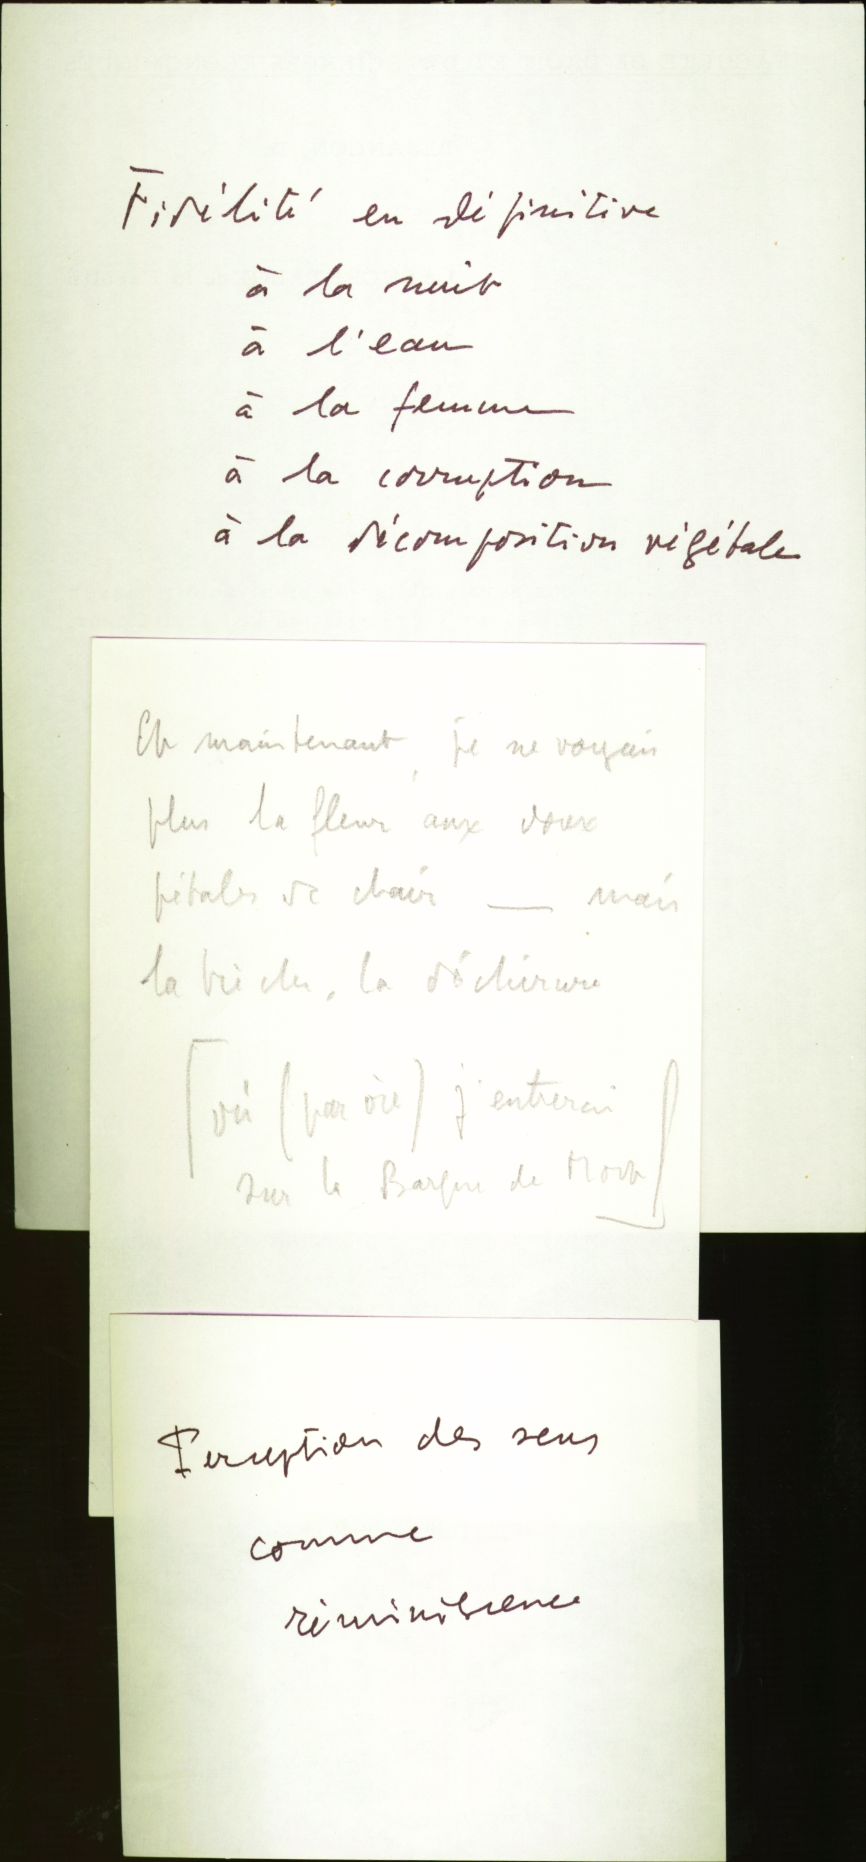 Fidélité en définitive
à la nuit
à l'eau
à la femme
à la corruption
à la décomposition végétale
Et maintenant, je ne voyais
plus la fleur aux doux
pétales de chair — mais
la brèche, la déchirure
[où (par où) j'entrerai
sur la Barque de Mort]
Perception des sens
comme
réminiscence